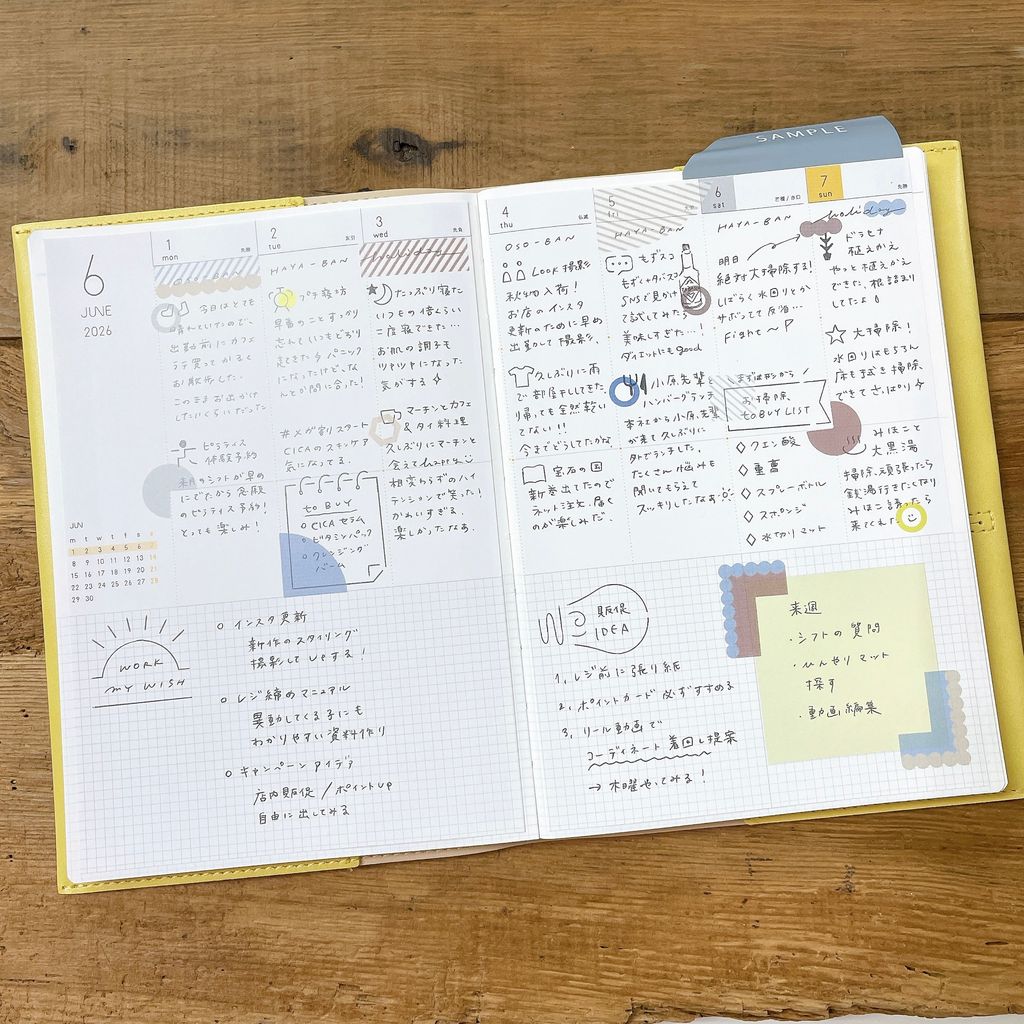 SAMPLE
6
JUNE
2026
1
mon
先勝
OSO-BAN
今日はとても
晴れていたので、
出勤前にカフェ
ラテ買ってかるく
お散歩した。
このままお出かけ
したいくらいだった
ピラティス
体験予約
来月のシフトが早め
にでたから念願
のピラティス予約!
とっても楽しみ!
2
tue
友引
HAYA-BAN
プチ寝坊
早番のことすっかり
忘れていつもどおり
起きてきたパニック
になったけど、な
んとか間に合った!
#メガ割りスタート
CICAのスキンケア
気になってる。
TO BUY
CICA セラム
ビタミンパック
クレンジング
バーム
3
wed
先負
holiday
たっぷり寝た
いつもの倍くらい
二度寝できた…
お肌の調子も
ツヤツヤになった
気がする
マーチンとカフェ
& タイ料理
久しぶりにマーチンと
会えてhappy
相変わらずのハイ
テンションで笑った!
かわいすぎる。
楽しかったなぁ。
JUN
m t w t f s s
1 2 3 4 5 6 7
8 9 10 11 12 13 14
15 16 17 18 19 20 21
22 23 24 25 26 27 28
29 30
WORK
MY WISH
インスタ更新
新作のスタイリング
撮影してUPする!
レジ締めマニュアル
異動してくる子にも
わかりやすい資料作り
キャンペーンアイデア
店内販促/ポイントUP
自由に出してみる
4
thu
仏滅
OSO-BAN
LOOK撮影
秋物入荷!
お店のインスタ
更新のために早め
出勤して撮影。
久しぶりに雨
で部屋干ししてきた。
帰っても全然乾い
てない!!
今までどうしてたかな
宝石の国
新巻出てたので
ネット注文。届く
のが楽しみだ。
5
fri
大安
HAYA-BAN
もずタバスコ
もずくタバスコ
SNSで見かけ
て試してみたら
美味しすぎた…!
ダイエットにもgood
小原先輩と
ハンバーグランチ
本社から小原先輩
が来て久しぶりに
外でランチした。
たくさん悩みも
聞いてもらえて
スッキリしたなぁ
6
sat
芒種/赤口
HAYA-BAN
明日
絶対大掃除する!
しばらく水回りとか
サボってて反省…
Fight〜
まずは社から
お掃除
TO BUY LIST
クエン酸
重曹
スプレーボトル
スポンジ
水切りマット
7
sun
先勝
holiday
ドラセナ
植えかえ
やっと植えかえ
できた。根詰まり
してたよ
大掃除!
水回りはもちろん
床も拭き掃除
できてさっぱり
みほこと
大黒湯
掃除、頑張ったら
銭湯行きたくなり
みほこ誘ったら
来てくれた
販促
IDEA
1, レジ前に張り紙
2, ポイントカード必ずすすめる
3, リール動画で
コーディネート着回し提案
→木曜やってみる!
来週
・シフトの質問
・ひんやりマット
探す
・動画編集